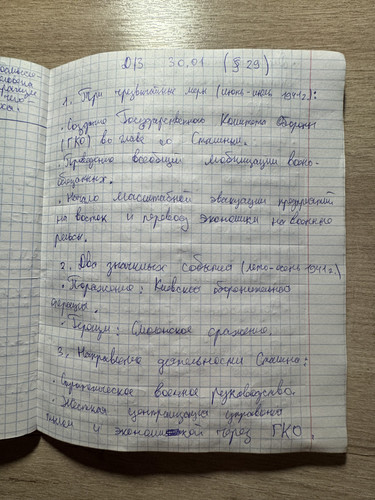 Д/З 30.01 (§ 29)
1. Три чрезвычайные меры (июнь-июль 1941г.):
· Создание Государственного Комитета Обороны
(ГКО) во главе со Сталиным.
· Проведение всеобщей мобилизации военно-
обязанных.
· Начало масштабной эвакуации предприятий
на восток и перевод экономики на военные
рельсы.
2. Два значимых события (лето-осень 1941 г.)
· Поражение: Киевская оборонительная
операция.
· Героизм: Смоленское сражение.
3. Направления деятельности Сталина:
· Стратегическое военное руководство.
· Жёсткая централизация управле
нием и экономикой через ГКО